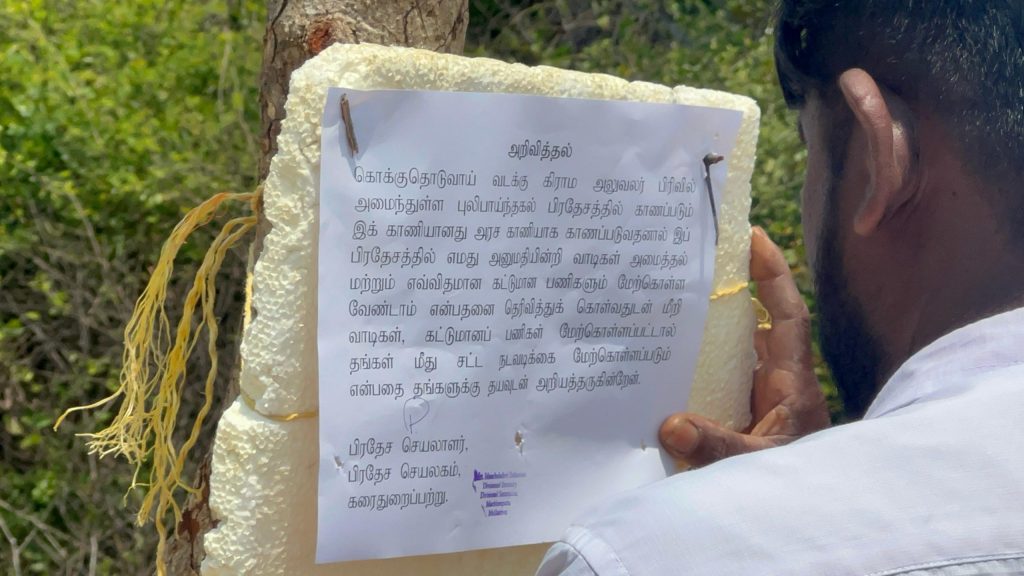 அறிவித்தல்
கொக்குதொடுவாய் வடக்கு கிராம அலுவலர் பிரிவில்
அமைந்துள்ள புலிபாய்ந்தகல் பிரதேசத்தில் காணப்படும்
இக் காணியானது அரச காணியாக காணப்படுவதனால் இப்
பிரதேசத்தில் எமது அனுமதியின்றி வாடிகள் அமைத்தல்
மற்றும் எவ்விதமான கட்டுமான பணிகளும் மேற்கொள்ள
வேண்டாம் என்பதனை தெரிவித்துக் கொள்வதுடன் மீறி
வாடிகள், கட்டுமானப் பணிகள் மேற்கொள்ளப்பட்டால்
தங்கள் மீது சட்ட நடவடிக்கை மேற்கொள்ளப்படும்
என்பதை தங்களுக்கு தயவுடன் அறியத்தருகின்றேன்.
பிரதேச செயலாளர்,
பிரதேச செயலகம்,
கரைதுறைப்பற்று.